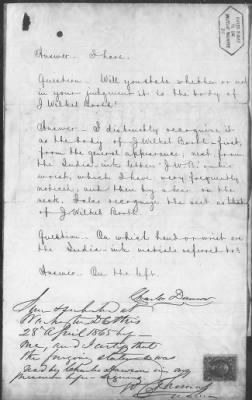 Answer - I have.
Question - Will you state whether or not
in your judgment it is the body of
J Wilkes Booth?
Answer - I distinctly recognize it
as the body of J Wilkes Booth - first,
from the general appearance, next, from
the India-ink letters "J.W.B." on his
wrist, which I have very frequently
noticed, and then by a scar on the
neck. I also recognize the vest as that
of J Wilkes Booth.
Question - On which hand or wrist are
the India-ink marks referred to?
Answer - On the left.
Charles Dawson
Sworn & subscribed at
Washington
28 April 1865 by
me, and I certify that
the foregoing statement was
read by Charles Dawson in my
presence before signing